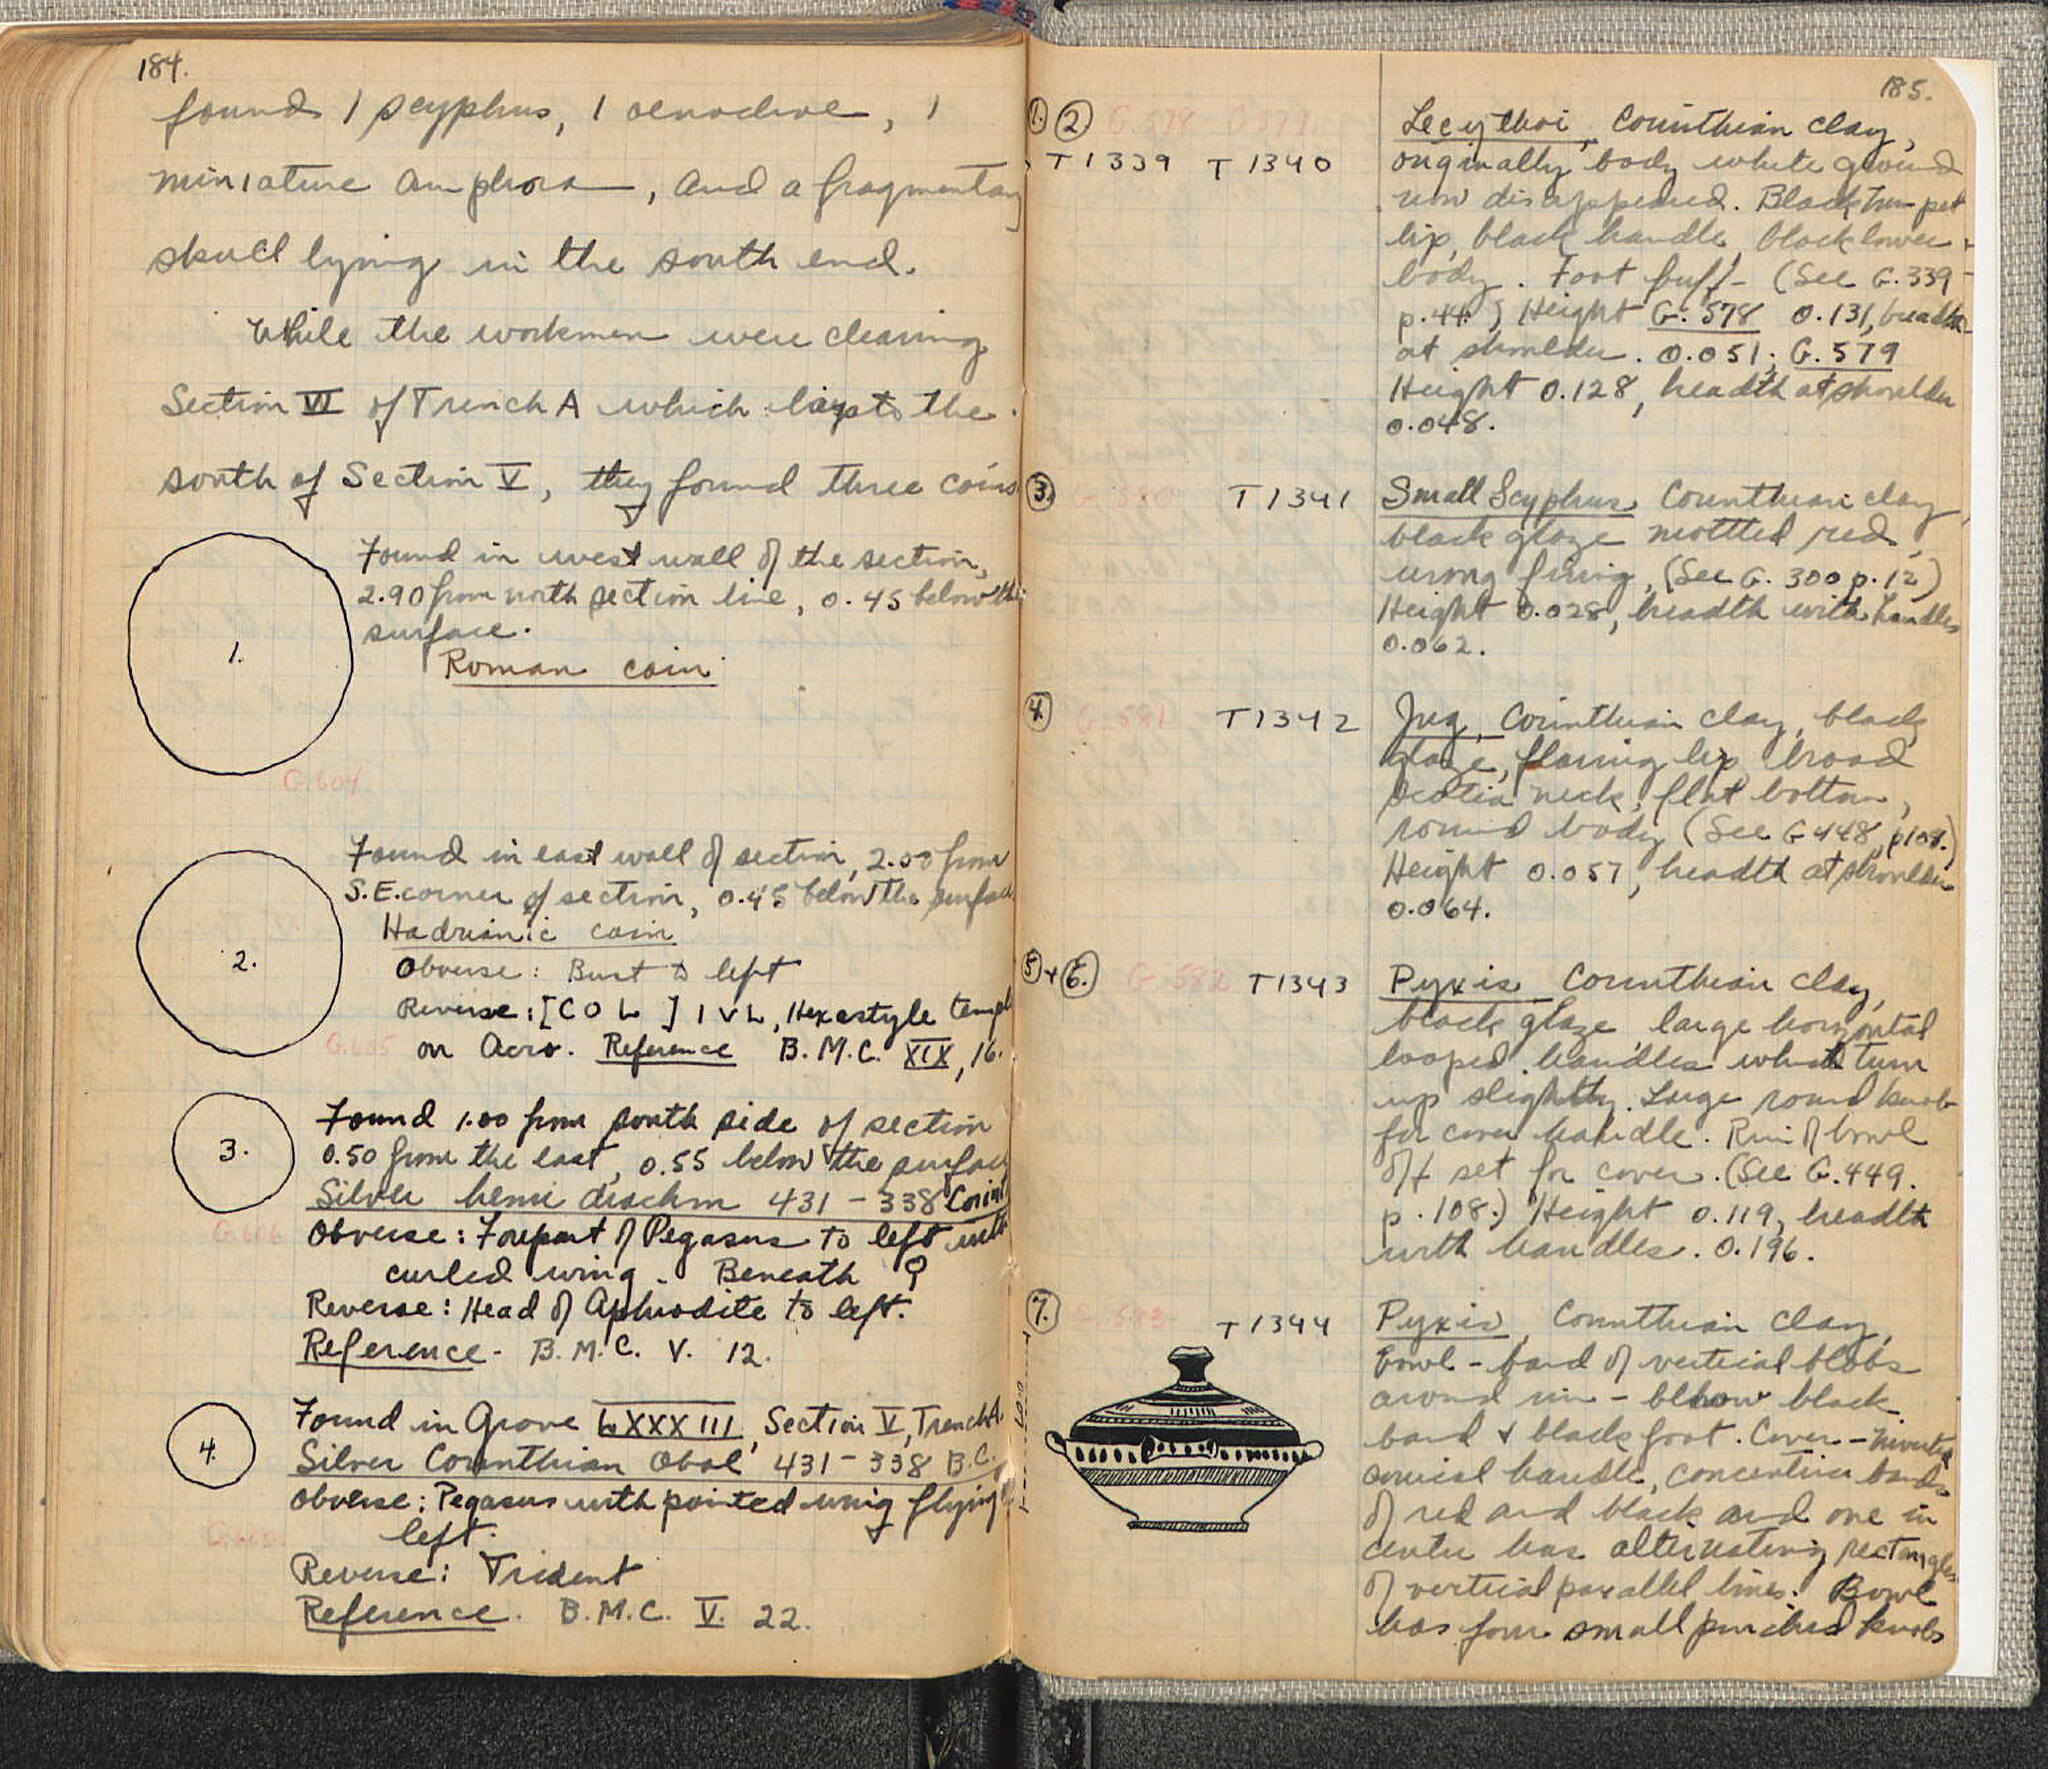 184.
found 1 scyphus, 1 oenochoe, 1
miniature amphora, and a fragmentary
skull lying in the south end.
While the workmen were clearing
Section VI of Trench A which lays to the
south of Section V, they found three coins
1.
Found in west wall of the section,
2.90 from north section line, 0.45 below the
surface.
Roman coin
G.604
2.
Found in east wall of section, 2.50 from
S.E. corner of section, 0.45 below the surface
Hadrianic coin
Obverse: Bust to left
Reverse: [COL] IVL, Hexastyle temple
G.605 on Acro. Reference B.M.C. XIX, 16.
3.
Found 1.00 from south side of section
0.50 from the east, 0.55 below the surface
Silver hemi drachm 431-338 Corint
G.606
Obverse: Forepart of Pegasus to left with
curled wing. Beneath Ϙ
Reverse: Head of Aphrodite to left.
Reference- B.M.C. V. 12.
4.
Found in Grave LXXXIII, Section V, Trench A.
Silver Corinthian Obol 431-338 B.C.
Obverse: Pegasus with pointed wing flying
left.
Reverse: Trident
Reference. B.M.C. V. 22.
185.
1. 2 G.578 G.579
T1339 T1340
Lecythoi, Corinthian clay,
originally body white ground
now disappeared. Black trumpet
lip, black handle, black lower
body. Foot buff- (See G.339
p.44.) Height G.578 0.131, breadth
at shoulder. 0.051; G.579
Height 0.128, breadth at shoulder
0.048.
3. G.580 T1341
Small Scyphus Corinthian clay,
black glaze mottled red,
wrong firing, (See G.300 p.12)
Height 0.028, breadth with handles
0.062.
4. G.581 T1342
Jug, Corinthian clay, black
glaze, flaring lip, broad
scotia neck, flat bottom,
round body (See G448, p108.)
Height 0.057, breadth at shoulder
0.064.
5 + 6. G.582 T1343
Pyxis Corinthian clay,
black glaze, large horizontal
looped handles which turn
up slightly. Large round knob
for cover handle. Rim of bowl
off set for cover. (See G.449.
p.108.) Height 0.119, breadth
with handles. 0.196.
7. G.583 T1344
Pyxis, Corinthian clay,
Bowl - band of vertical blobs
around rim - below black
band + black foot. Cover - Inverted
conical handle, concentric bands
of red and black and one in
center has alternating rectangles
of vertical parallel lines. Bowl
has four small pinched knobs